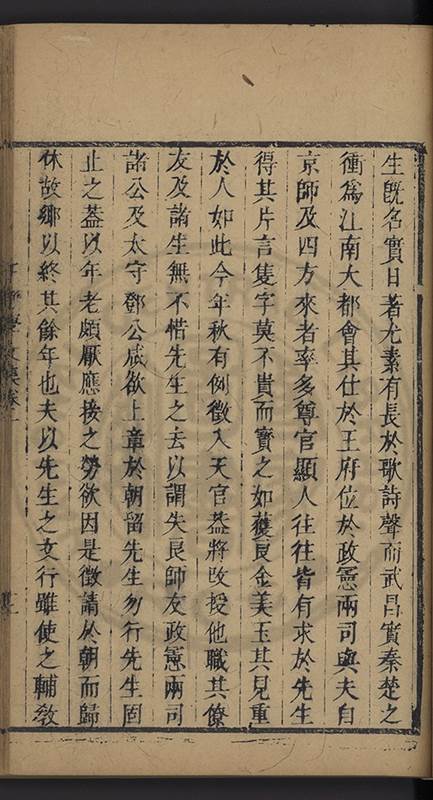 生既名實日著尤素有長於歌詩聲而武昌實秦楚之
衝為江南大都會其仕於王府位於政憲兩司與夫自
京師及四方來者率多尊官顯人往往皆有求於先生
得其片言隻字莫不貴而寶之如獲良金美玉其見重
於人如此今年秋有例徵入天官葢將改授他職其僚
友及諸生無不惜先生之去以謂失良師友政憲兩司
諸公及太守鄧公咸欲上章於朝留先生勿行先生固
止之葢以年老頗厭應接之勞欲因是徵請於朝而歸
休故鄉以終其餘年也夫以先生之文行雖使之輔敎